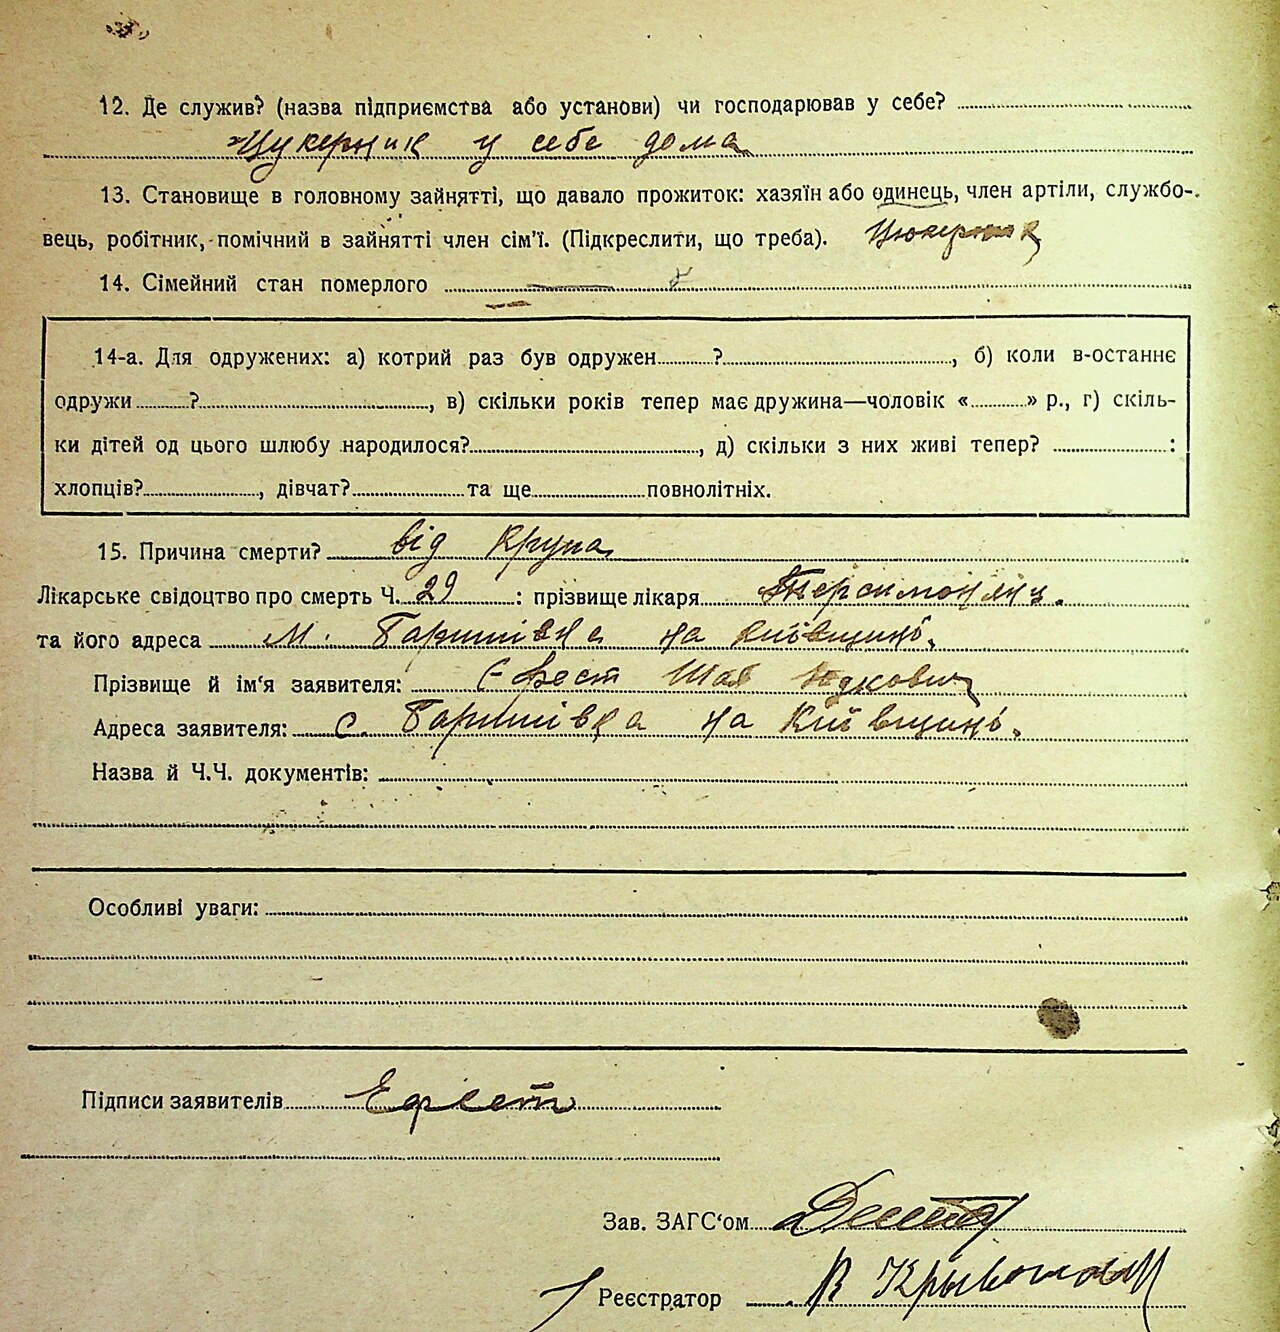 12. Де служив? (назва підприємства або установи) чи господарював у себе?
Цукерник у себе дома
13. Становище в головному зайнятті, що давало прожиток: хазяїн або одинець, член артіли, службо-
вець, робітник, помічний в зайнятті член сім'ї. (Підкреслити, що треба). Цюкерник
14. Сімейний стан померлого
14-а. Для одружених: а) котрий раз був одружен ? , б) коли в-останнє
одружи ? , в) скільки років тепер має дружина—чоловік « » р., г) скіль-
ки дітей од цього шлюбу народилося? , д) скільки з них живі тепер? :
хлопців? , дівчат? та ще повнолітніх.
15. Причина смерти? від Крупа
Лікарське свідоцтво про смерть Ч. 29 : прізвище лікаря
та його адреса м. Баришівка на Київщині.
Прізвище й ім'я заявителя: Ефест Шая Юдкович
Адреса заявителя: с. Баришівка на Київщині.
Назва й Ч.Ч. документів:
Особливі уваги:
Підписи заявителів Ефест
Зав. ЗАГС'ом
Реєстратор В